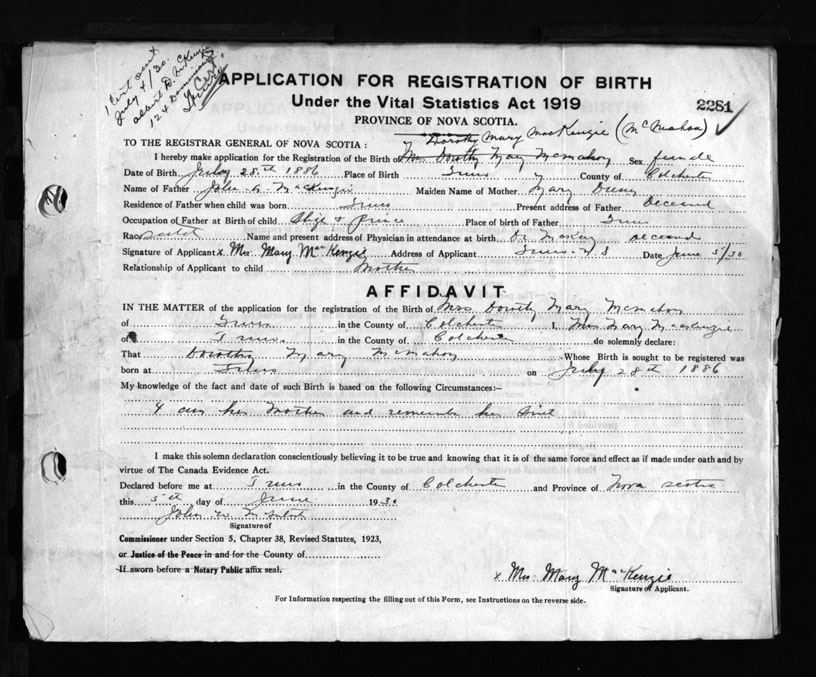 1 Cert sent
July 4/30.
Albert D. McKenzie
124 Dominion St.
Truro
APPLICATION FOR REGISTRATION OF BIRTH
Under the Vital Statistics Act 1919
2281
PROVINCE OF NOVA SCOTIA.
Dorothy Mary MacKenzie (McMahon)
TO THE REGISTRAR GENERAL OF NOVA SCOTIA:
I hereby make application for the Registration of the Birth of Mrs Dorothy Mary McMahon Sex female
Date of Birth July 28th 1886 Place of Birth Truro County of Colchester
Name of Father John MacKenzie Maiden Name of Mother Mary
Residence of Father when child was born Truro Present address of Father Deceased
Occupation of Father at Birth of child Place of birth of Father Truro
Race Name and present address of Physician in attendance at birth Dr McKay Deceased
Signature of Applicant x Mrs Mary MacKenzie Address of Applicant Truro N S Date June 5/30
Relationship of Applicant to child Mother
AFFIDAVIT
IN THE MATTER of the application for the registration of the Birth of Mrs Dorothy Mary McMahon
of Truro in the County of Colchester I, Mrs Mary MacKenzie
of Truro in the County of Colchester do solemnly declare:
That Dorothy Mary McMahon Whose Birth is sought to be registered was
born at Truro on July 28th 1886
My knowledge of the fact and date of such Birth is based on the following Circumstances:—
I am her Mother and remember her Birth
I make this solemn declaration conscientiously believing it to be true and knowing that it is of the same force and effect as if made under oath and by
virtue of The Canada Evidence Act.
Declared before me at Truro in the County of Colchester and Province of Nova Scotia
this 5th day of June 1930
John W
Signature of
Commissioner under Section 5, Chapter 38, Revised Statutes, 1923,
or Justice of the Peace in and for the County of
If sworn before a Notary Public affix seal.
x Mrs. Mary MacKenzie
Signature of Applicant.
For Information respecting the filling out of this Form, see Instructions on the reverse side.